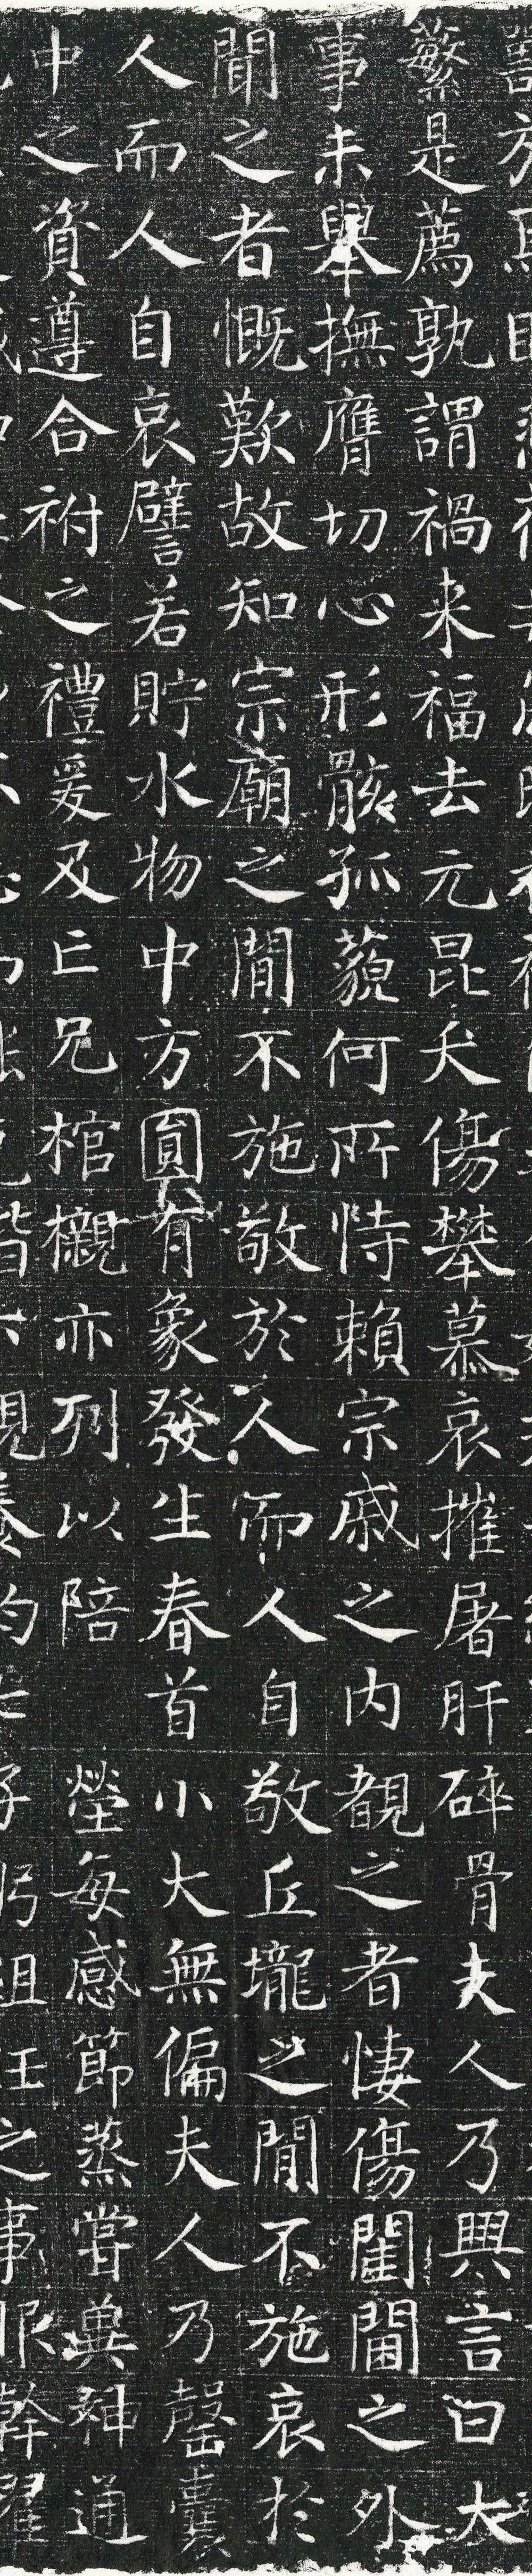 繄是薦孰謂禍来福去元昆夭傷攀慕哀摧屠肝碎骨夫人乃興言曰大
事未舉撫膺切心形骸孤藐何所恃賴宗戚之内覩之者悽傷之外
聞之者慨歎故知宗廟之間不施敬於人而人自敬丘壠之間不施哀於
人而人自哀譬若貯水物中方圓有象發生春首小大無偏夫人乃罄囊
中之資遵合祔之禮爰及亡兄棺櫬亦列以陪塋每感節蒸嘗兾神通